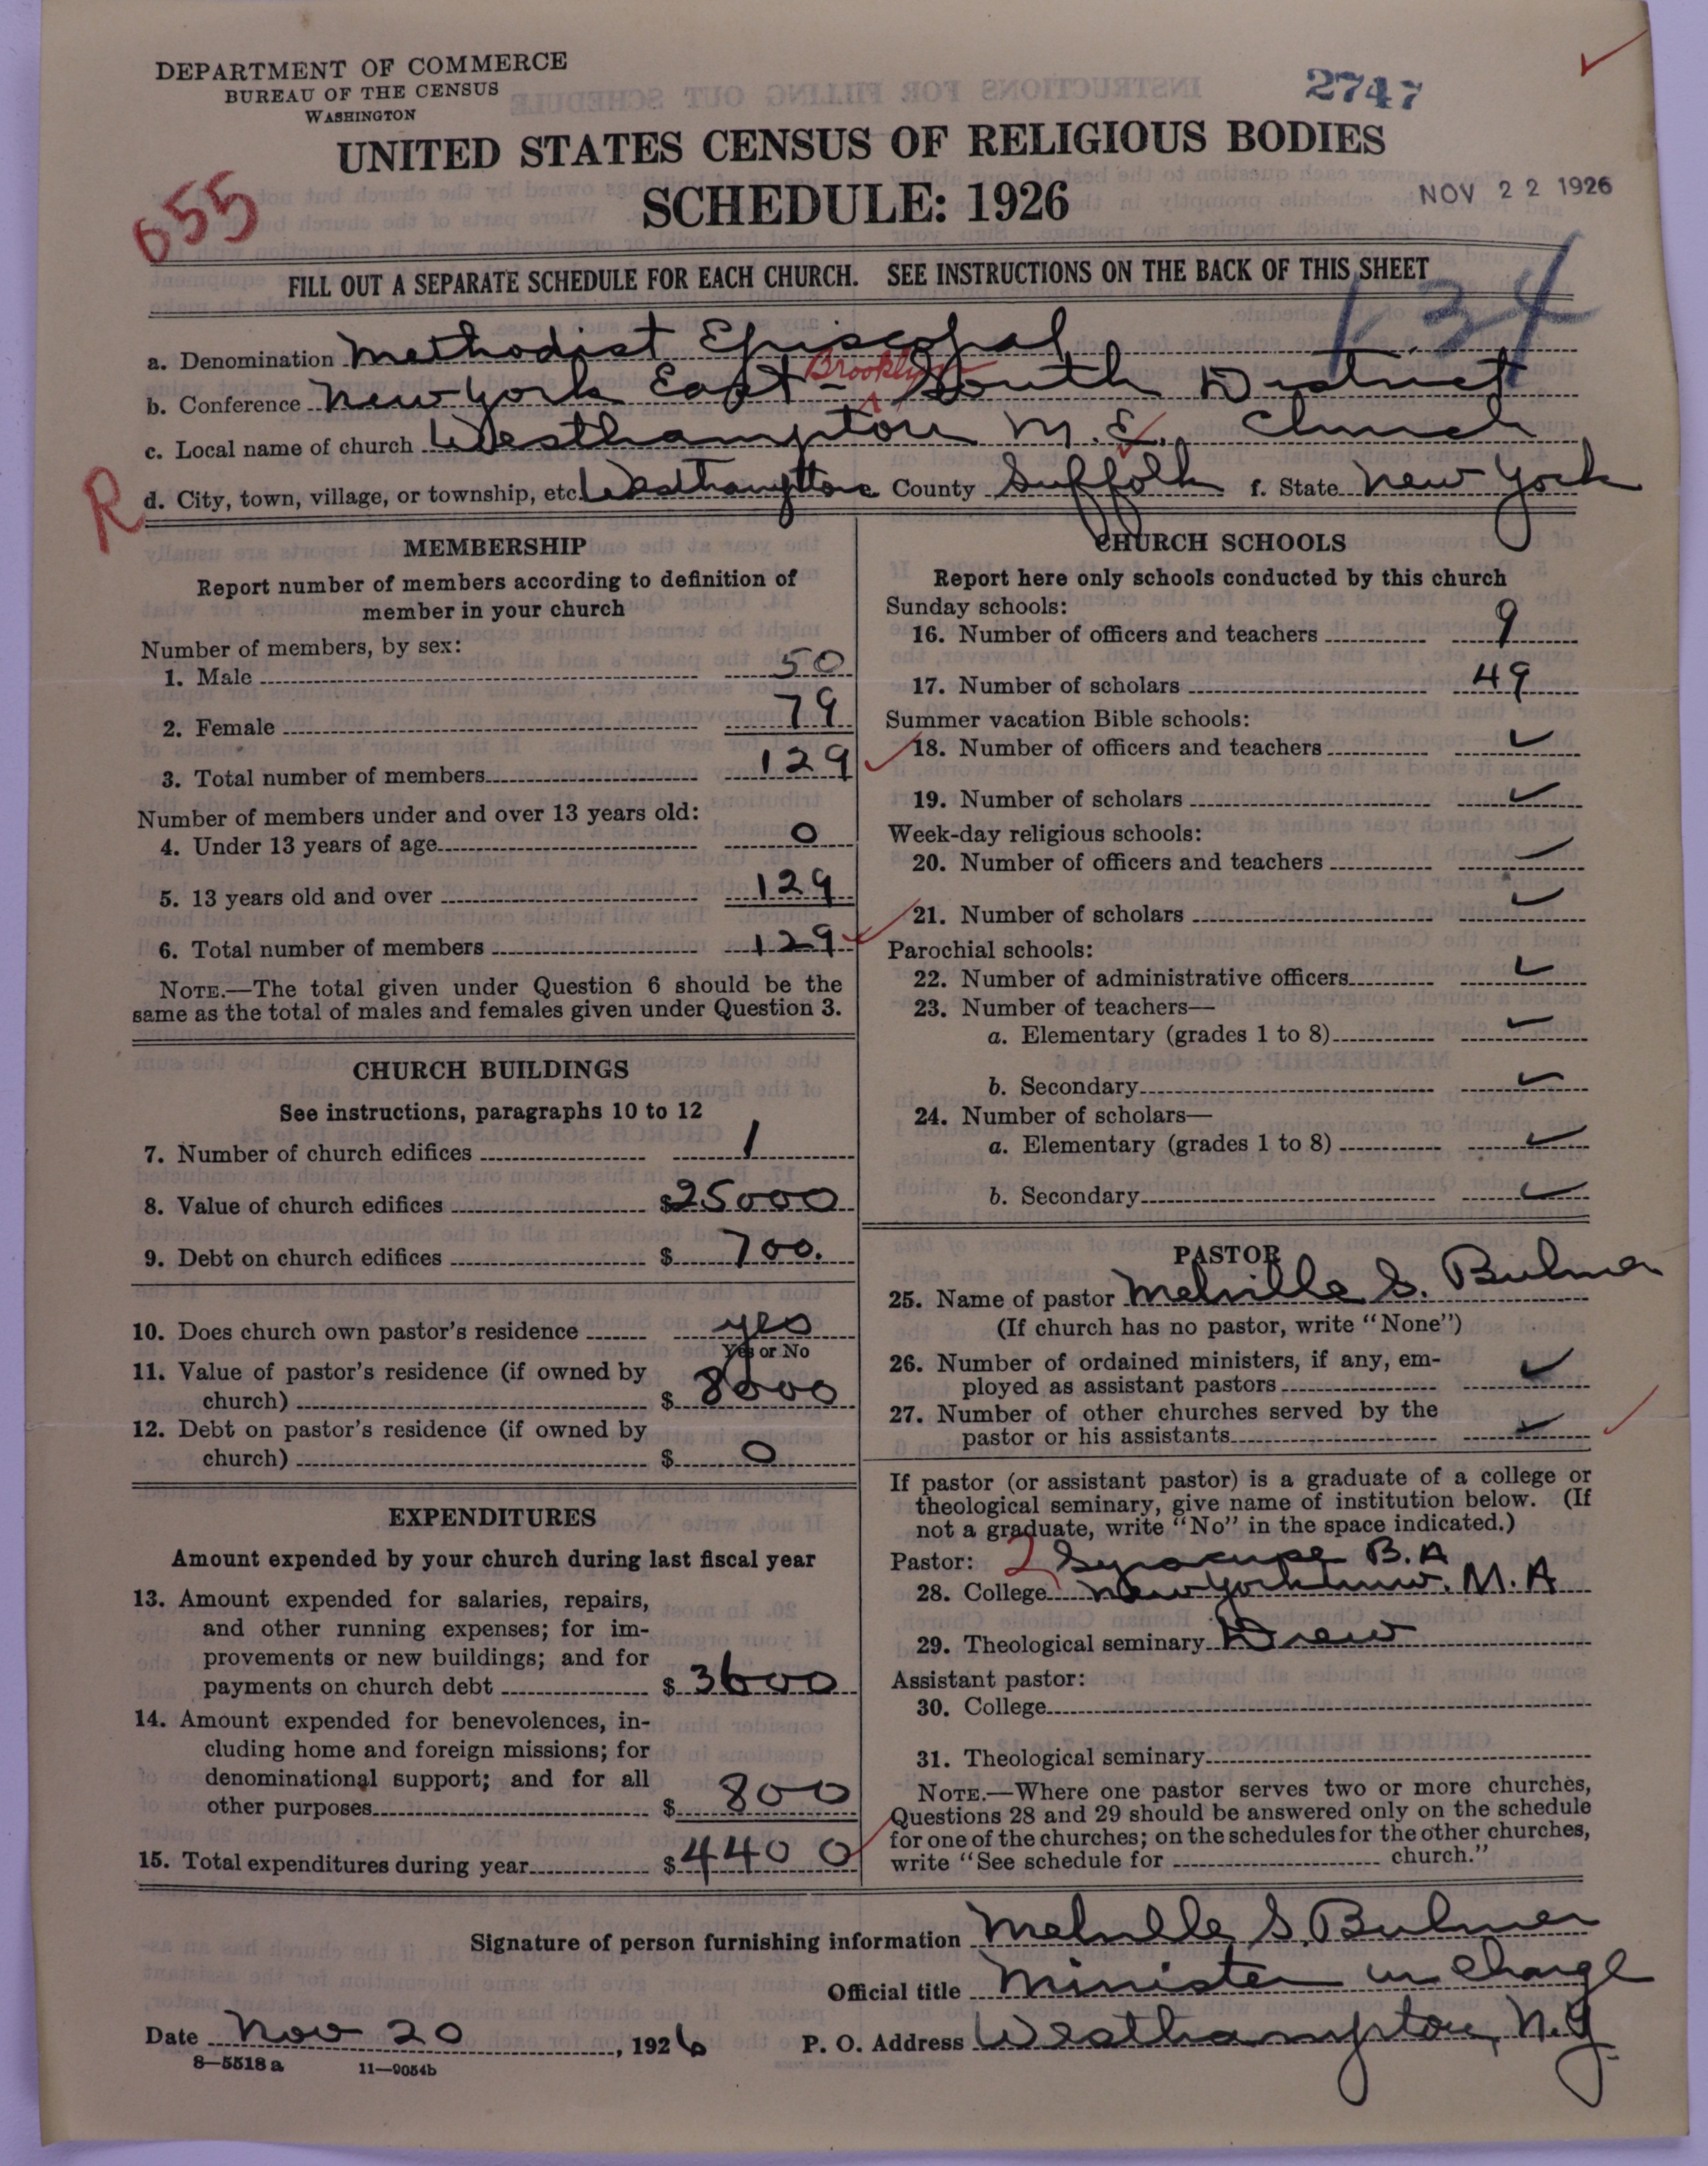 DEPARTMENT OF COMMERCE
BUREAU OF THE CENSUS
WASHINGTON
2747
UNITED STATES CENSUS OF RELIGIOUS BODIES
SCHEDULE: 1926
NOV 22 1926
655
134
FILL OUT A SEPARATE SCHEDULE FOR EACH CHURCH. SEE INSTRUCTIONS ON THE BACK OF THIS SHEET
a. Denomination Methodist Episcopal
b. Conference New York East - Brooklyn South District
c. Local name of church Westhampton M.E. Church
R
d. City, town, village, or township, etc. Westhampton County Suffolk f. State New York
MEMBERSHIP
Report number of members according to definition of
member in your church
Number of members, by sex:
1. Male 50
2. Female 79
3. Total number of members 129
Number of members under and over 13 years old:
4. Under 13 years of age 0
5. 13 years old and over 129
6. Total number of members 129
NOTE.—The total given under Question 6 should be the
same as the total of males and females given under Question 3.
CHURCH BUILDINGS
See instructions, paragraphs 10 to 12
7. Number of church edifices 1
8. Value of church edifices $25000
9. Debt on church edifices $700.
10. Does church own pastor's residence yes
Yes or No
11. Value of pastor's residence (if owned by
church) $8000
12. Debt on pastor's residence (if owned by
church) $0
EXPENDITURES
Amount expended by your church during last fiscal year
13. Amount expended for salaries, repairs,
and other running expenses; for im-
provements or new buildings; and for
payments on church debt $3600
14. Amount expended for benevolences, in-
cluding home and foreign missions; for
denominational support; and for all
other purposes $800
15. Total expenditures during year $4400
CHURCH SCHOOLS
Report here only schools conducted by this church
Sunday schools:
16. Number of officers and teachers 9
17. Number of scholars 49
Summer vacation Bible schools:
18. Number of officers and teachers
19. Number of scholars
Week-day religious schools:
20. Number of officers and teachers
21. Number of scholars
Parochial schools:
22. Number of administrative officers
23. Number of teachers—
a. Elementary (grades 1 to 8)
b. Secondary
24. Number of scholars—
a. Elementary (grades 1 to 8)
b. Secondary
PASTOR
25. Name of pastor Melville S. Bulmer
(If church has no pastor, write "None")
26. Number of ordained ministers, if any, em-
ployed as assistant pastors
27. Number of other churches served by the
pastor or his assistants
If pastor (or assistant pastor) is a graduate of a college or
theological seminary, give name of institution below. (If
not a graduate, write "No" in the space indicated.)
Pastor: 2 Syracuse B.A
28. College New York Univ. M.A
29. Theological seminary Drew
Assistant pastor:
30. College
31. Theological seminary
NOTE.—Where one pastor serves two or more churches,
Questions 28 and 29 should be answered only on the schedule
for one of the churches; on the schedules for the other churches,
write "See schedule for church."
Signature of person furnishing information Melville S. Bulmer
Official title Minister in Charge
Date Nov 20, 1926 P. O. Address Westhampton, N.Y.
8—5518a 11—9054b